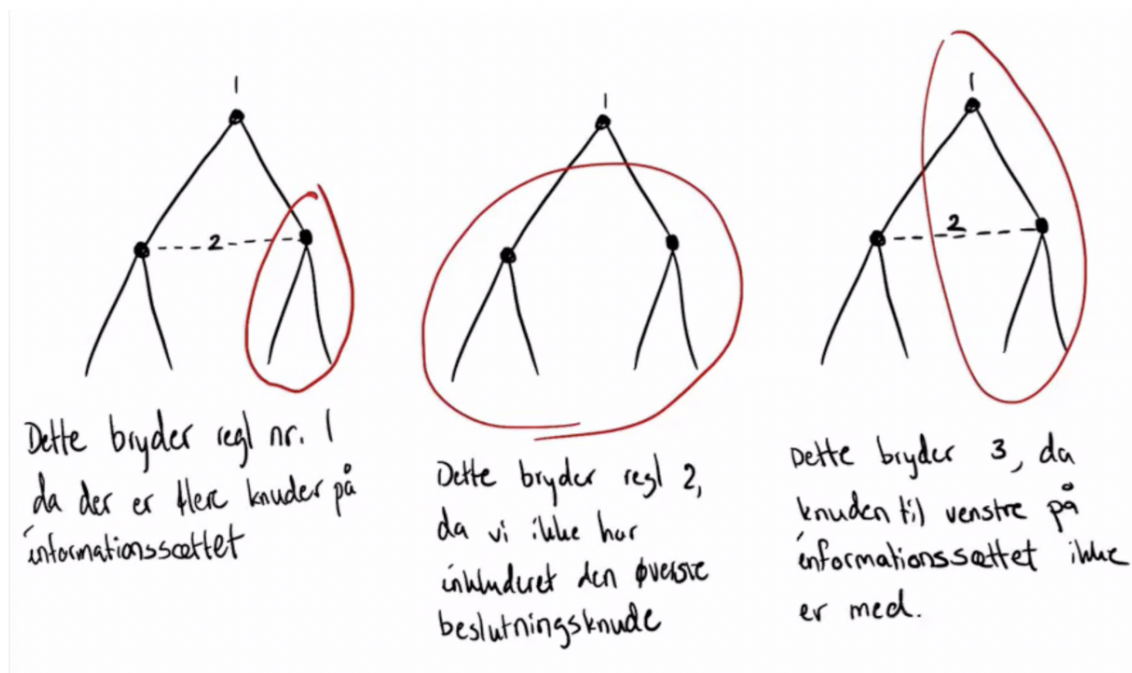 1
2
Dette bryder regl nr. 1
da der er flere knuder på
informationssættet
1
Dette bryder regl 2,
da vi ikke har
inkluderet den øverste
beslutningsknude
1
2
Dette bryder 3, da
knuden til venstre på
informationssættet ikke
er med.